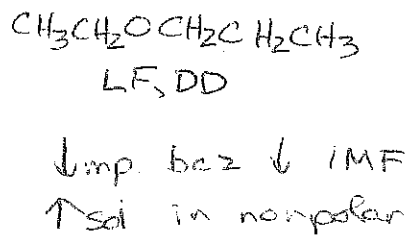 CH₃CH₂OCH₂CH₂CH₃
LF, DD
↓mp. bcz ↓ IMF
↑ sol in nonpolar